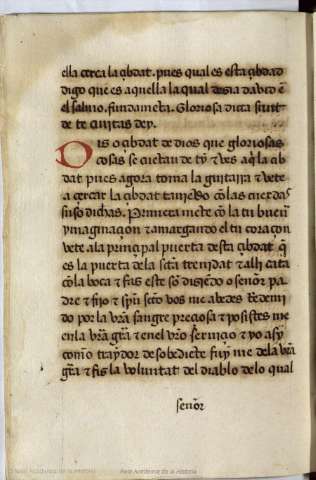 ella cerca la çibdat. pues qual es esta çibdad
digo que es aquella la qual desia dauid ẽ
el salmo. fundamẽta. Gloriosa dicta sunt
de te ciuitas dey.
Ois o çibdat de dios que gloriosas
cosas se cuẽtan de ty & ves aq̃ la çib
dat pues agora toma la guitarra & vete
a çercar la çibdat tañẽdo cõ las cuerdas
suso dichas. Primera mẽte cõ la tu buena
ymaginaçion & amargando el tu coraçon
vete a la prinçipal puerta desta çibdat q̃
es la puerta de la sctã trenidat & alli cata
cõ la boca & fas este sõ disiẽdo o señor pa
dre & fijo & spũ scto vos me avedes Redemi
do por la vrã sangre preçiosa & posistes me
en la vrã grã & en el vrõ seruiçio & yo asy
commo traydor desobediẽte fuy me de la vrã
grã & fis la voluntat del diablo de lo qual
señor
Real Academia de la Historia